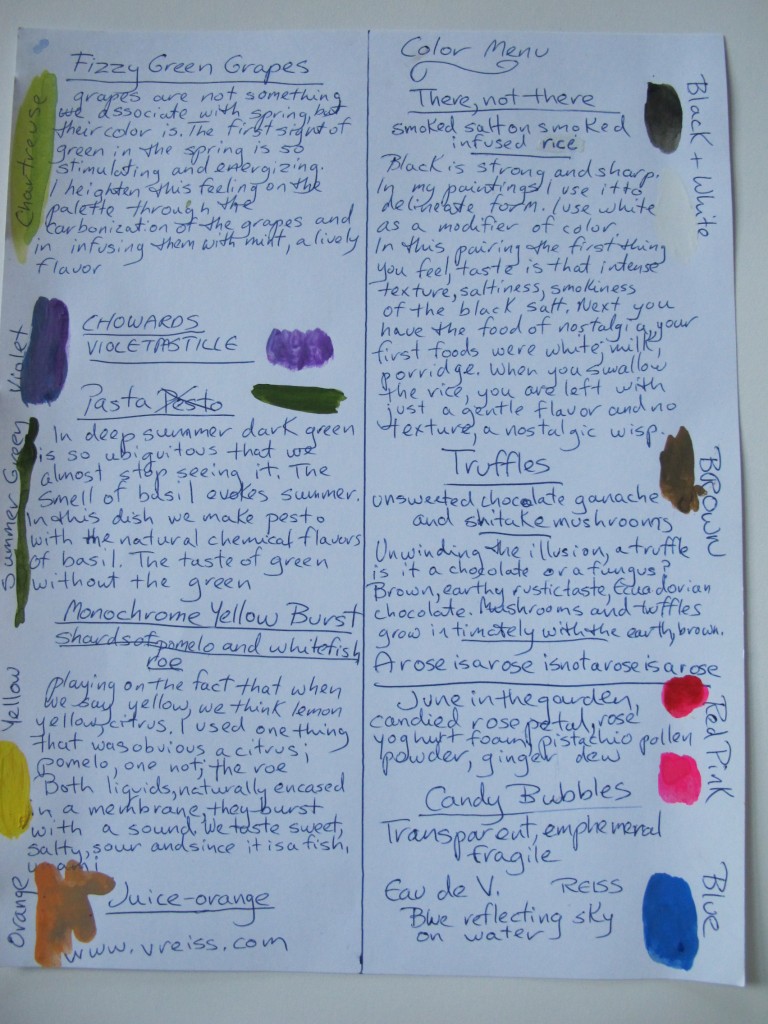 Fizzy Green Grapes
grapes are not something
we associate with spring, but
their color is. The first sight of
green in the spring is so
stimulating and energizing.
I heighten this feeling on the
palette through the
carbonization of the grapes and
in infusing them with mint, a lively
flavor
Chartreuse
CHOWARDS
VIOLET PASTILLE
Violet
Pasta Pesto
In deep summer dark green
is so ubiquitous that we
almost stop seeing it. The
smell of basil evokes summer.
In this dish we make pesto
with the natural chemical flavors
of basil. The taste of green
without the green
Summer Green
Monochrome Yellow Burst
shards of pomelo and whitefish
roe
playing on the fact that when
we say yellow, we think lemon
yellow, citrus. I used one thing
that was obvious a citrus;
pomelo, one not; the roe
Both liquids, naturally encased
in a membrane, they burst
with a sound. We taste sweet,
salty, sour and since it is a fish,
umami
Yellow
Juice-orange
Orange
www.vreiss.com
Color Menu
There, not there
smoked salt on smoked
infused rice
Black is strong and sharp.
In my paintings I use it to
delineate form. I use white
as a modifier of color.
In this, pairing the first thing
you feel, taste is that intense
texture, saltiness, smokiness
of the black salt. Next you
have the food of nostalgia, your
first foods were white; milk,
porridge. When you swallow
the rice, you are left with
just a gentle flavor and no
texture, a nostalgic wisp.
Black + White
Truffles
unsweeted chocolate ganache
and shitake mushrooms
Unwinding the illusion, a truffle
is it a chocolate or a fungus?
Brown, earthy rustic taste, Ecuadorian
chocolate. Mushrooms and tuffles
grow intimately with the earth, brown.
BROWN
A rose is a rose is not a rose is a rose
June in the garden,
candied rose petal, rose
yoghurt foam, pistachio pollen
powder, ginger dew
Red Pink
Candy Bubbles
Transparent, emphemeral
fragile
Eau de V. REISS
Blue reflecting sky
on water
Blue